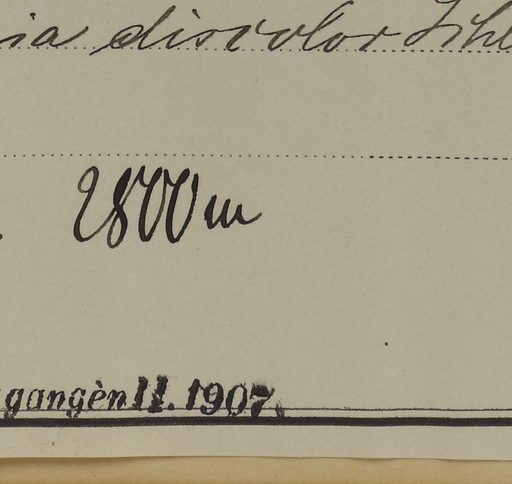 ia discolor
2800 m
gangèn II. 1907.